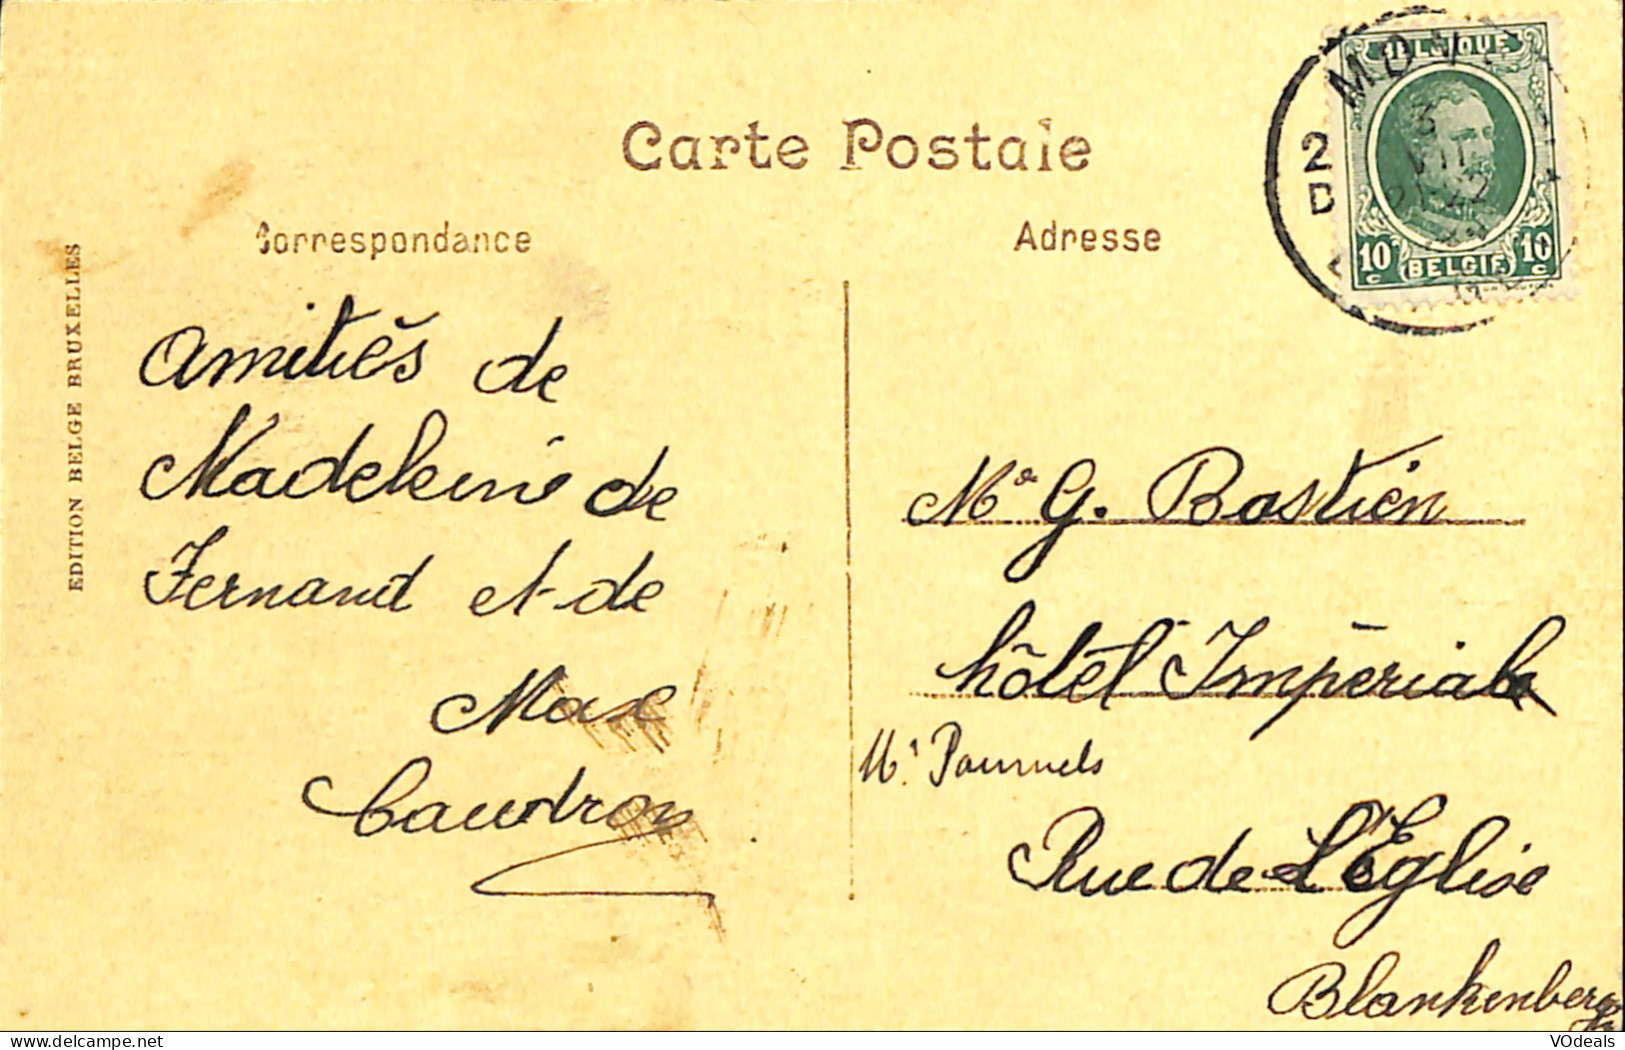 Carte Postale
Correspondance
Adresse
EDITION BELGE BRUXELLES
BELGIQUE
10 c BELGIË 10 c
2
D
Amitiés de
Madeleine de
Fernand et de
Max
Caudron
Mr G. Bastien
hôtel Impérial
Mr Pauwels
Rue de l'Eglise
Blankenberghe
VOdeals